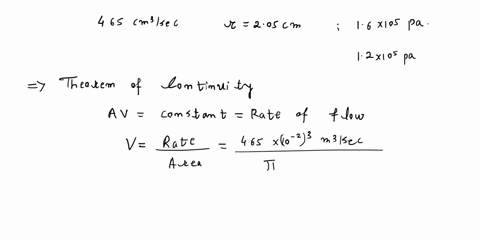 465 cm³/sec r = 2.05 cm ; 1.6 x 10⁵ pa.
1.2 x 10⁵ pa
=> Theorem of Continuity
AV = constant = Rate of flow
V = Rate / Area = 465 x (10⁻²)³ m³/sec / π